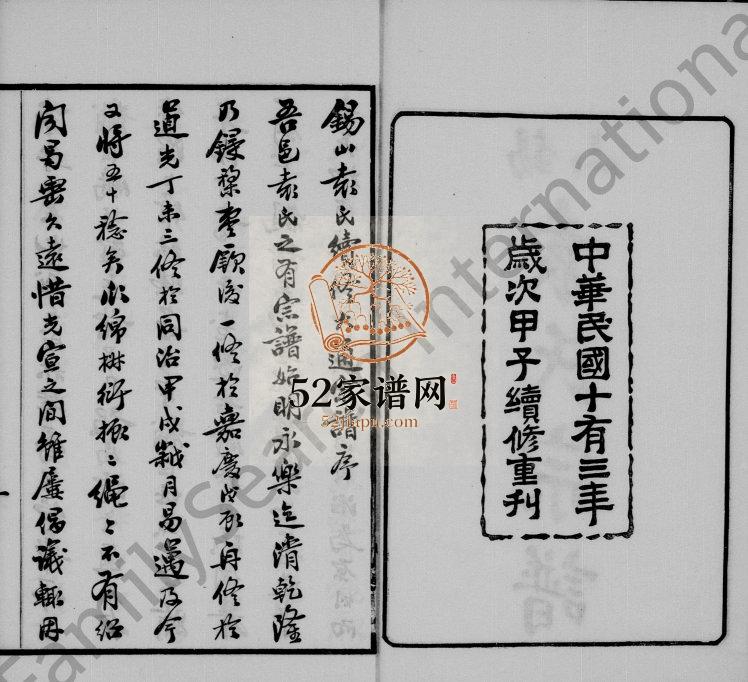 中華民國十有三年
歲次甲子續修重刊
錫山袁氏續修大通宗譜序
吾邑袁氏之有宗譜始明永樂迄清乾隆
乃鋟棃枣厥後一修於嘉慶戊辰再修於
道光丁未三修於同治甲戌越月易邁及今
又將五十稔矣瓜綿樹衍振振繩繩不有紹
聞曷垂久遠惜光宣之間雖屢倡議輒因
52家谱网
52jiapu.com
FamilySearch International